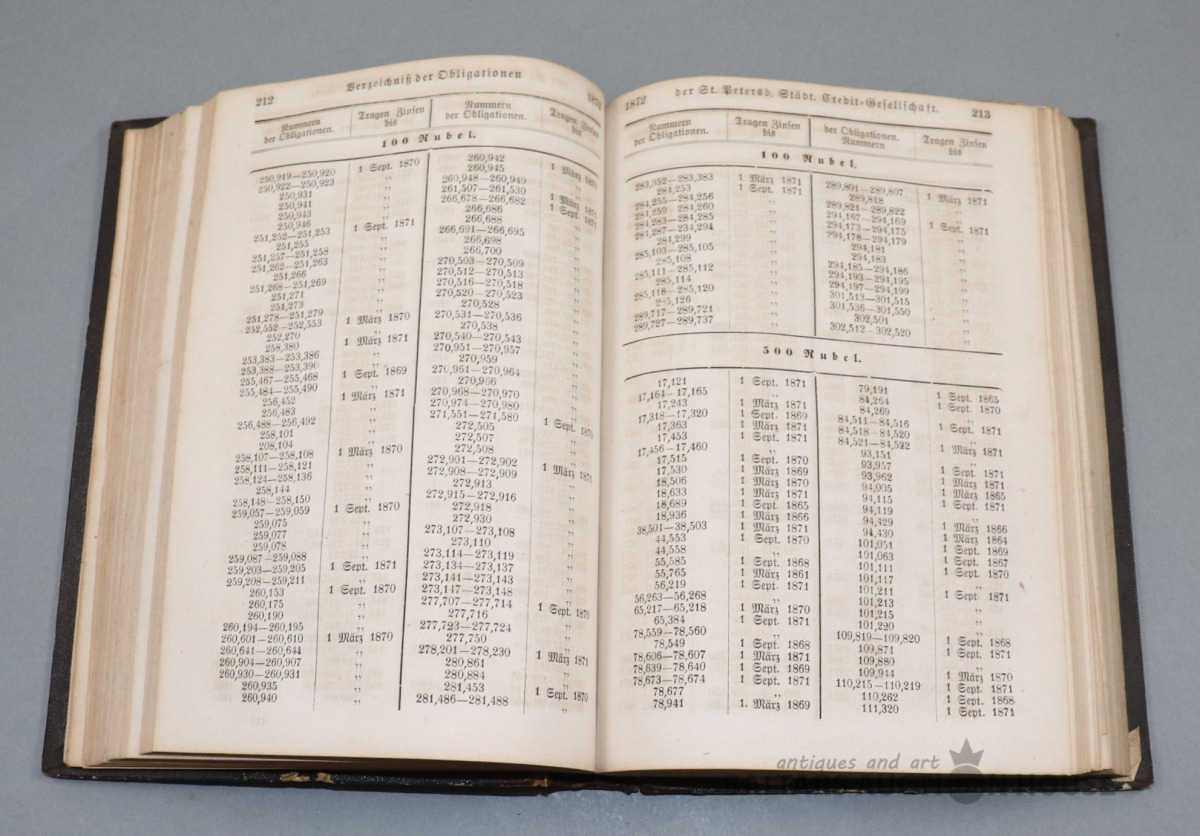 212 Verzeichniß der Obligationen
Nummern der Obligationen. Tragen Zinsen bis
Nummern der Obligationen. Tragen Zinsen
100 Rubel.
250,919—250,920 1 Sept. 1870
250,922—250,923 „
250,931 „
250,941 „
250,943 „
250,946 „
251,252—251,253 1 Sept. 1871
251,255 „
251,257—251,258 „
251,262—251,263 „
251,266 „
251,268—251,269 „
251,271 „
251,273 „
251,278—251,279 „
252,552—252,553 1 März 1870
252,270 „
258,380 1 März 1871
253,383—253,386 „
253,388—253,390 „
255,467—255,468 1 Sept. 1869
255,484—255,490 „
256,452 1 März 1871
256,483 „
256,488—256,492 „
258,101 „
208,104 „
258,107—258,108 1 März 1870
258,111—258,121 „
258,124—258,136 „
258,144 „
258,148—258,150 „
259,057—259,059 1 Sept. 1870
259,075 „
259,077 „
259,078 „
259,087—259,088 „
259,203—259,205 1 Sept. 1871
259,208—259,211 „
260,153 1 Sept. 1870
260,175 „
260,190 „
260,194—260,195 „
260,601—260,610 1 März 1870
260,641—260,644 „
260,904—260,907 „
260,930—260,931 „
260,935 „
260,940 „
260,942
260,945 1 März
260,948—260,949 „
261,507—261,530 „
266,678—266,682 1 März
266,686 1 Sept.
266,688 „
266,691—266,695 „
266,698 „
266,700 „
270,503—270,509 „
270,512—270,513 „
270,516—270,518 „
270,520—270,523 „
270,528 „
270,531—270,536 „
270,538 „
270,540—270,543 „
270,951—270,957 „
270,959 „
270,961—270,964 „
270,966 „
270,968—270,970 „
270,974—270,980 „
271,551—271,580 „
272,505 1 Sept. 1870
272,507 „
272,508 „
272,901—272,902 „
272,908—272,909 1 März 1871
272,913 „
272,915—272,916 „
272,918 „
272,930 „
273,107—273,108 „
273,110 „
273,114—273,119 „
273,134—273,137 „
273,141—273,143 „
273,147—273,148 „
277,707—277,714 „
277,716 1 Sept. 1870
277,723—277,724 „
277,750 „
278,201—278,230 „
280,861 1 März 1871
280,884 „
281,453 „
281,486—281,488 1 Sept. 1870
1872 der St. Petersb. Städt. Credit-Gesellschaft. 213
Nummern der Obligationen. Tragen Zinsen bis
der Obligationen. Nummern Tragen Zinsen bis
100 Rubel.
283,352—283,383 1 März 1871
284,253 1 Sept. 1871
284,255—284,256 „
284,259—284,260 „
284,283—284,285 „
284,287—234,294 „
284,299 „
285,103—285,105 „
285,108 „
285,111—285,112 „
285,114 „
285,118—285,120 „
285,126 „
289,717—289,721 „
289,727—289,737 „
289,801—289,807 1 März 1871
289,818 „
289,821—289,822 „
294,167—294,169 1 Sept. 1871
294,173—294,175 „
294,178—294,179 „
294,181 „
294,183 „
294,185—294,186 „
294,193—294,195 „
294,197—294,199 „
301,513—301,515 „
301,536—301,550 „
302,501 „
302,512—302,520 „
500 Rubel.
17,121 1 Sept. 1871
17,164—17,165 „
17,243 1 März 1871
17,318—17,320 1 Sept. 1869
17,363 1 März 1871
17,453 1 Sept. 1871
17,456—17,460 „
17,515 1 Sept. 1870
17,530 1 März 1869
18,506 1 März 1870
18,633 1 März 1871
18,689 1 Sept. 1865
18,936 1 März 1866
38,501—38,503 1 März 1871
44,553 1 Sept. 1870
44,558 „
55,585 1 Sept. 1868
55,765 1 März 1861
56,219 1 Sept. 1871
56,263—56,268 „
65,217—65,218 1 März 1870
65,384 1 Sept. 1871
78,559—78,560 „
78,549 1 Sept. 1868
78,606—78,607 1 März 1871
78,639—78,640 1 Sept. 1869
78,673—78,674 1 Sept. 1871
78,677 „
78,941 1. März 1869
79,191 1 Sept. 1865
84,264 1 Sept. 1870
84,269 „
84,511—84,516 1 Sept. 1871
84,518—84,520 „
84,521—84,522 1 März 1871
93,151 „
93,957 1 Sept. 1871
93,962 1 März 1871
94,005 1 März 1865
94,115 1 Sept. 1871
94,119 „
94,429 1 März 1866
94,430 1 März 1864
101,051 1 Sept. 1869
101,063 1 Sept. 1867
101,111 1 Sept. 1870
101,117 „
101,211 1 Sept. 1871
101,213 „
101,215 „
101,220 „
109,819—109,820 1 Sept. 1868
109,871 1 Sept. 1871
109,880 „
109,944 1 März 1870
110,215—110,219 1 Sept. 1871
110,262 1 Sept. 1868
111,320 1 Sept. 1871
antiques and art